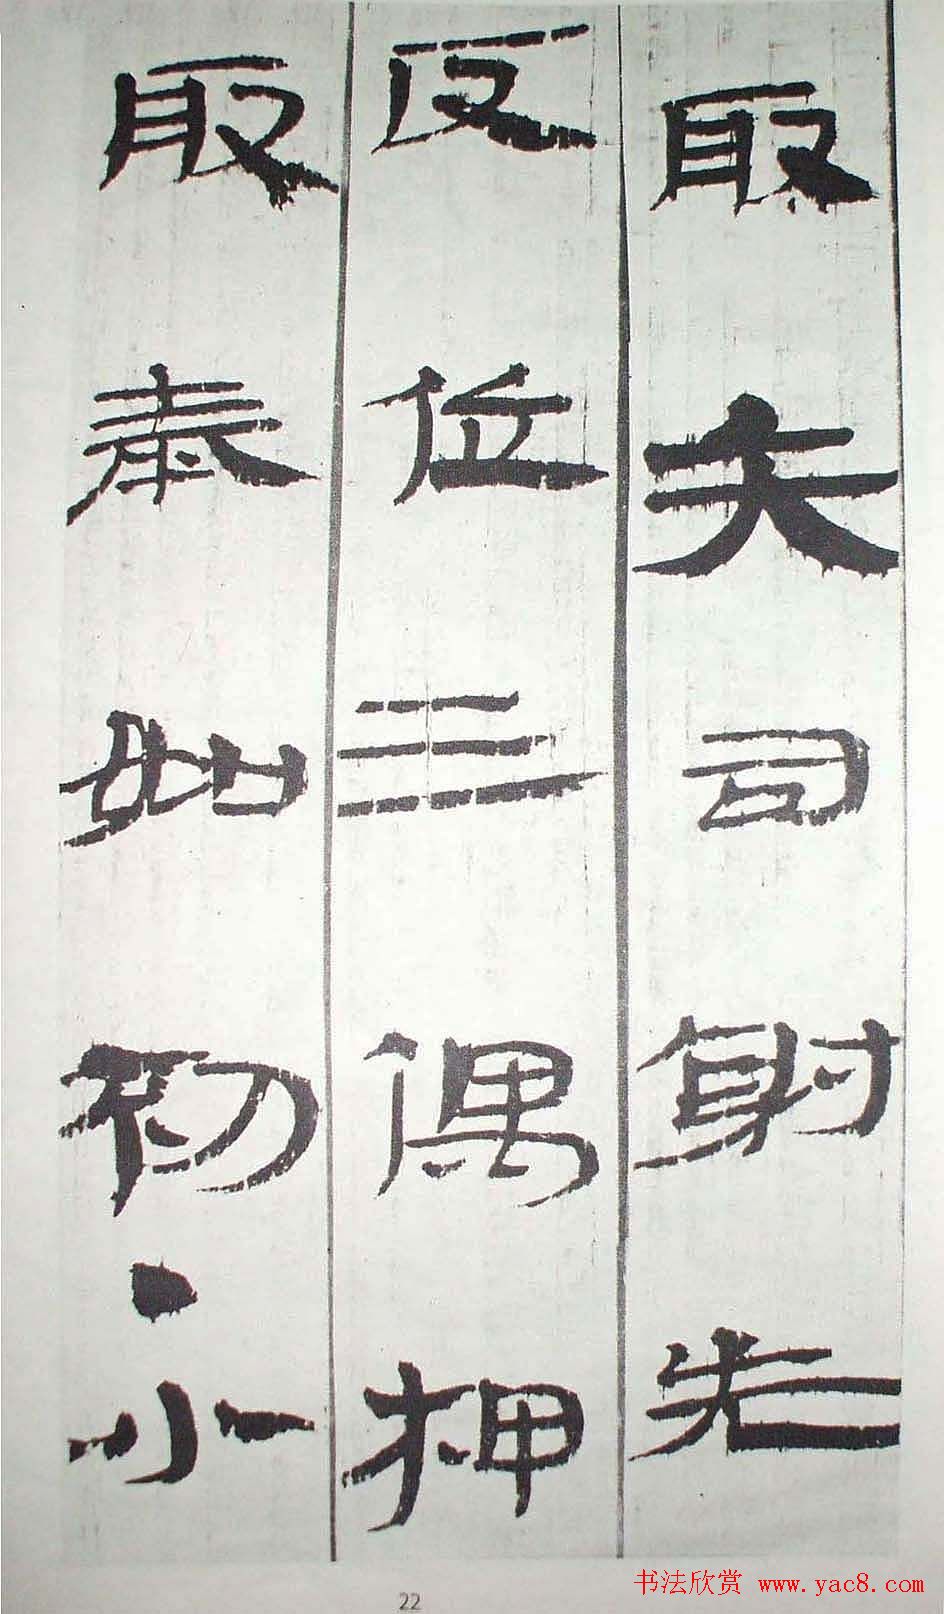 取矢司射先
反位三偶押
取奉如初·小
22
书法欣赏 www.yac8.com